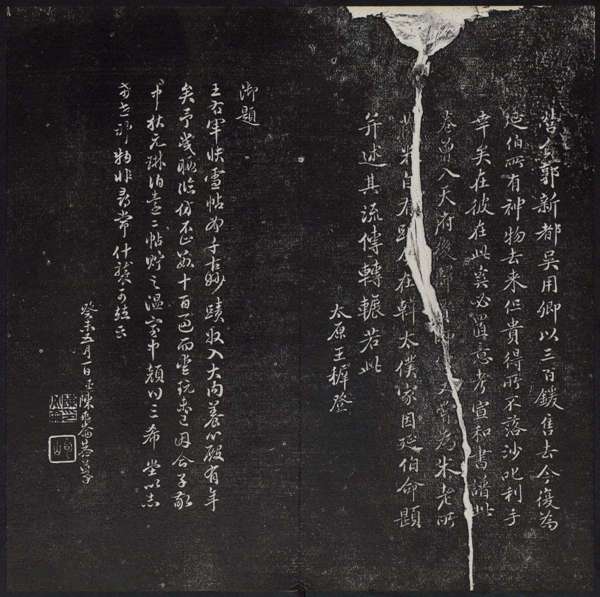 郭新都吳用卿以三百鍰售去今復為
延伯所有神物去來但貴得所不落沙叱利手
幸矣在彼在此奚必置意考宣和書譜此
卷曾入天府後 又嘗為朱老所
藏米自有跋今在韓太僕家因延伯命題
并述其流傳轉輾若此
太原王穉登
御題
王右軍快雪帖為千古妙蹟收入大內養心殿有年
矣予幾暇臨仿不止數十百過而愛玩未已因合子敬
中秋元琳伯遠二帖貯之溫室中顏曰三希堂以志
希世神物非尋常什襲可並云
癸未五月一日臣陳兆崙恭